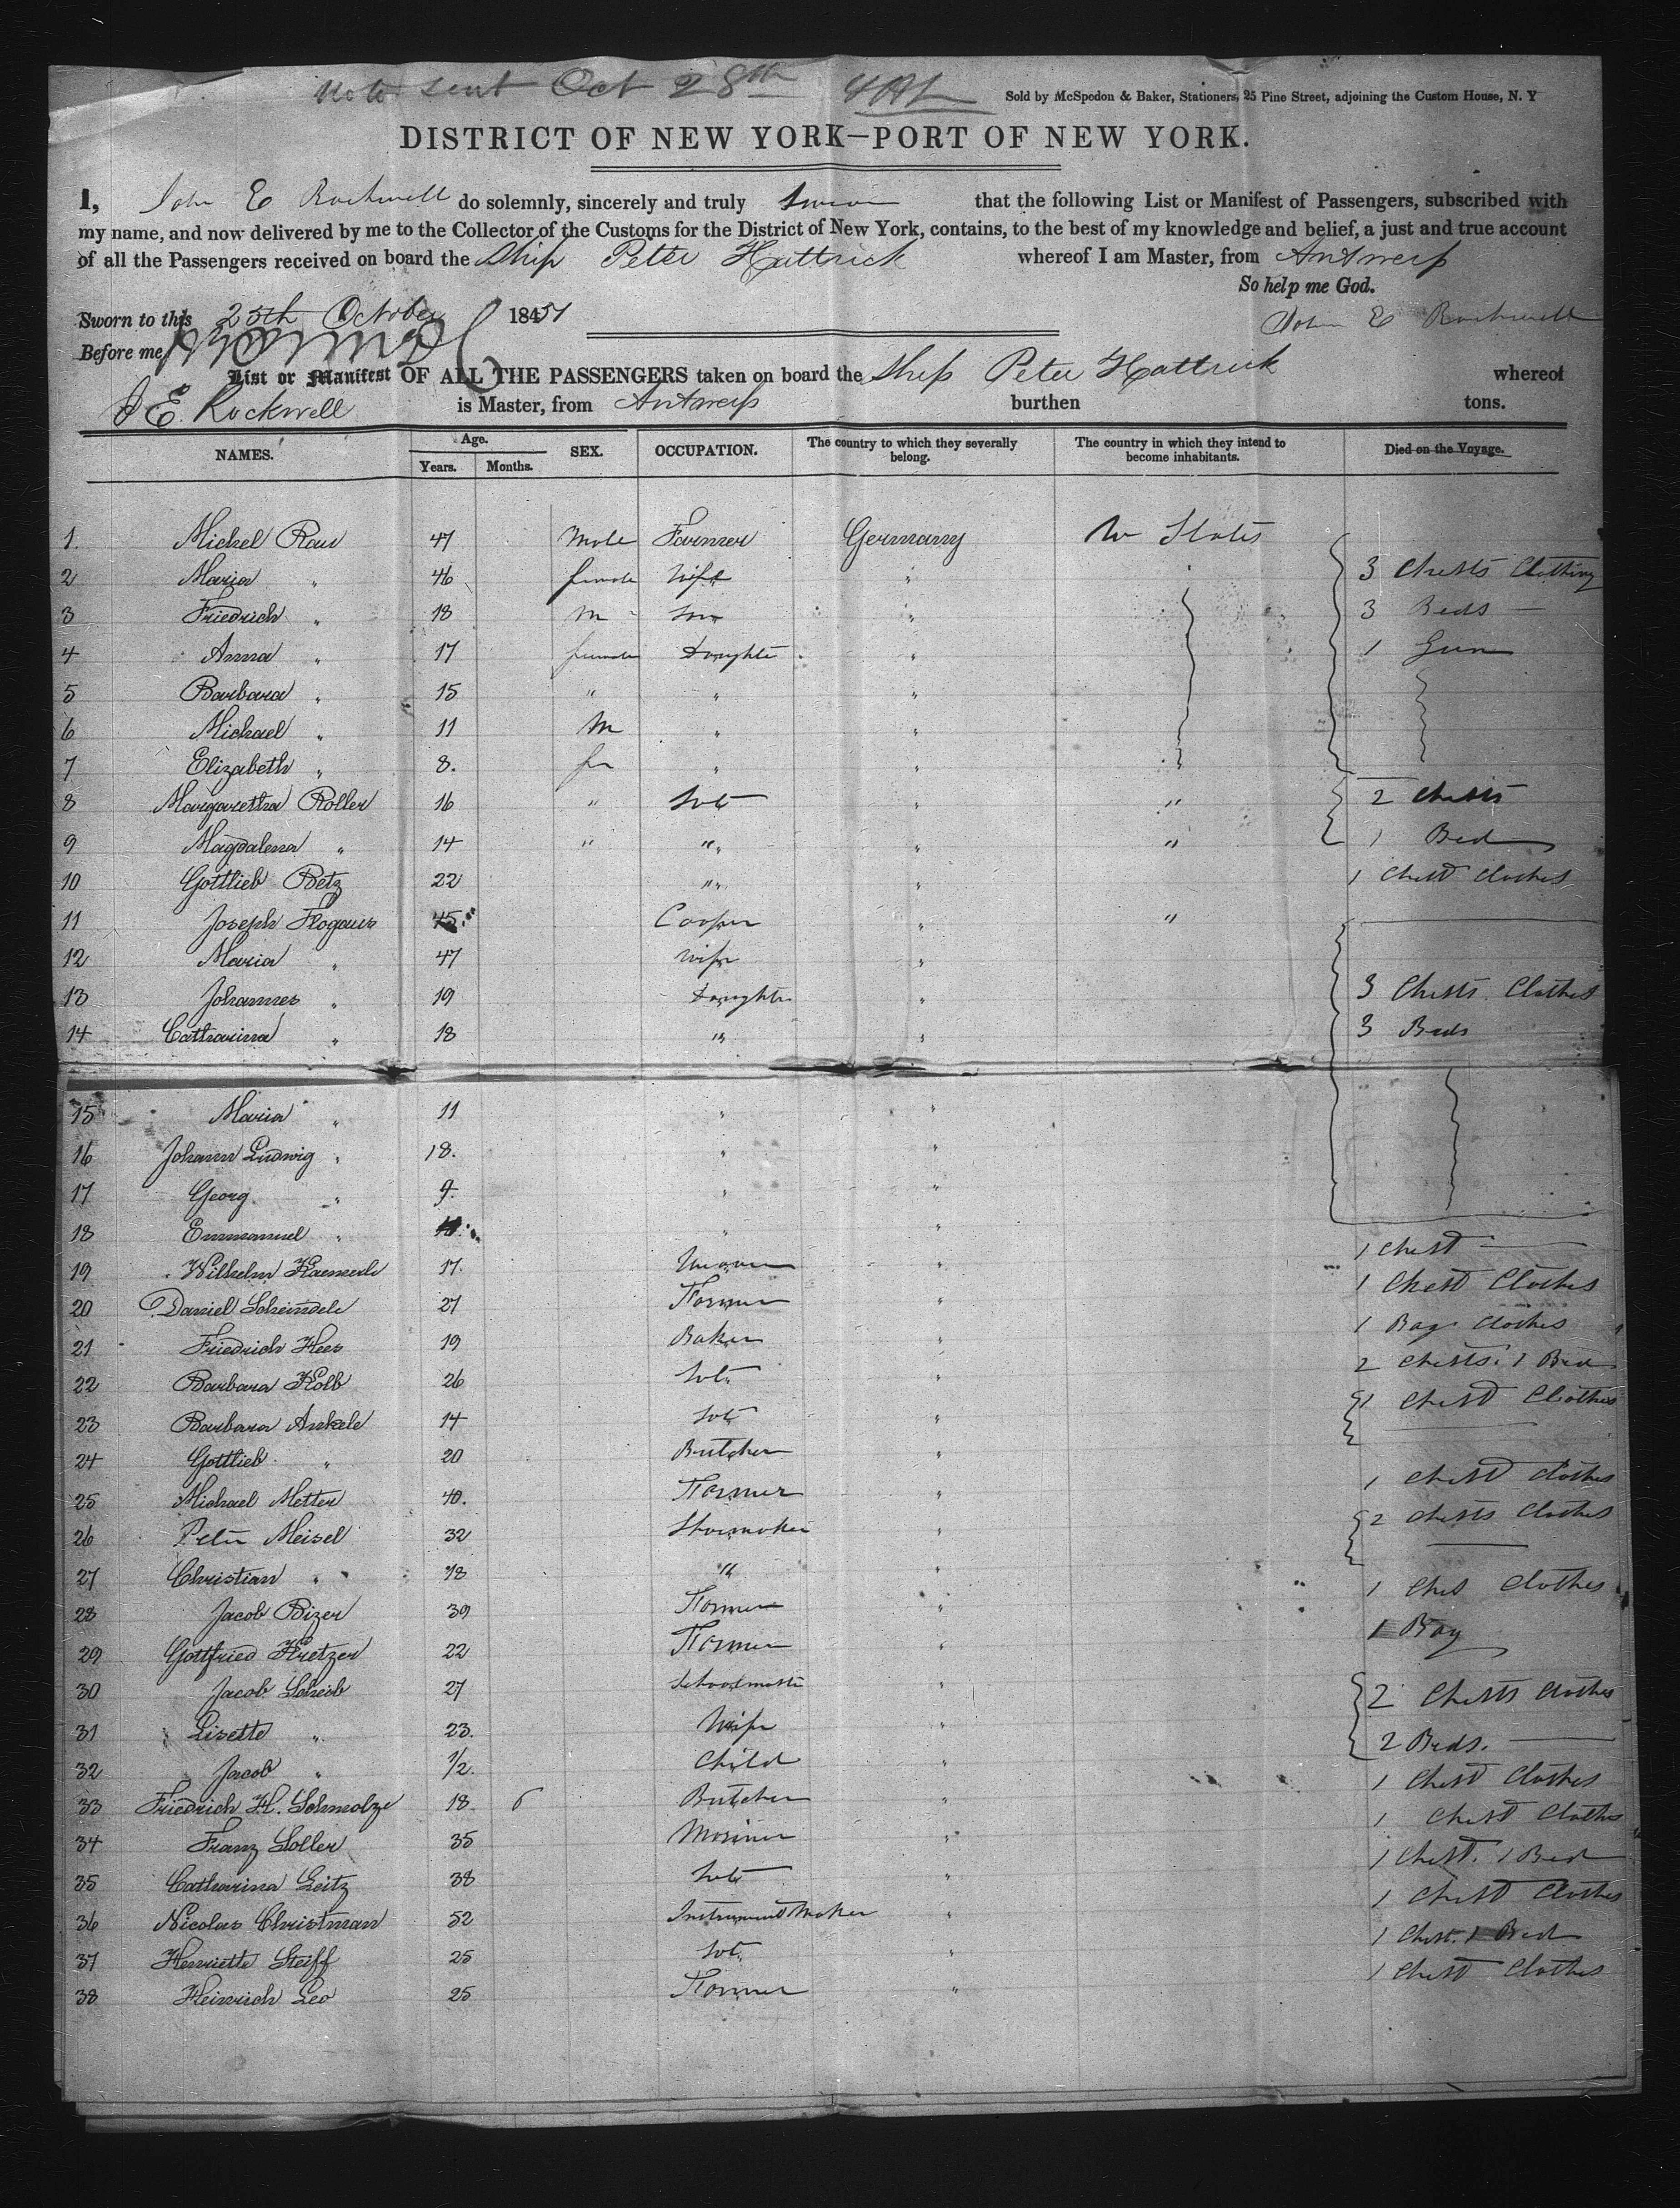 Note sent Oct 28th
Sold by McSpedon & Baker, Stationers, 25 Pine Street, adjoining the Custom House, N. Y
DISTRICT OF NEW YORK—PORT OF NEW YORK.
I, John E Rockwell do solemnly, sincerely and truly swear that the following List or Manifest of Passengers, subscribed with
my name, and now delivered by me to the Collector of the Customs for the District of New York, contains, to the best of my knowledge and belief, a just and true account
of all the Passengers received on board the Ship Peter Hattrick whereof I am Master, from Antwerp
So help me God.
Sworn to this 25th October 1851 John E Rockwell
Before me
List or Manifest OF ALL THE PASSENGERS taken on board the Ship Peter Hattrick whereof
J E Rockwell is Master, from Antwerp burthen tons.
NAMES. Age. Years. Months. SEX. OCCUPATION. The country to which they severally belong. The country in which they intend to become inhabitants. Died on the Voyage.
1. Michel Rau 47 Male Farmer Germany U States
2 Maria " 46 female Wife " 3 Chests Clothing
3 Friedrich " 18 m son " 3 Beds —
4 Anna " 17 female Daughter " 1 Gun
5 Barbara " 15 " " "
6 Michael " 11 m " "
7 Elizabeth " 8. fe " "
8 Margaretha Roller 16 " " " 2 Chests
9 Magdalena " 14 " " " " 1 Bed
10 Gottlieb Betz 22 " " 1 Chest Clothes
11 Joseph Flogaus 45 Cooper " "
12 Maria " 47 Wife "
13 Johannes " 19 Daughter " 3 Chests Clothes
14 Catharina " 18 " " 3 Beds
15 Maria " 11 " "
16 Johann Ludwig " 18. " "
17 Georg " 9. " "
18 Emmanuel " " "
19 Wilhelm 17. " 1 Chest
20 Daniel Scheindele 27 Farmer " 1 Chest Clothes
21 Friedrich Hees 19 Baker " 1 Bag Clothes
22 Barbara Kolb 26 " 2 Chests. 1 Bed
23 Barbara Ankele 14 " 1 Chest Clothes
24 Gottlieb " 20 Butcher "
25 Michael Metter 40. Farmer " 1 Chest Clothes
26 Peter Meisel 32 Shoemaker " 2 Chests Clothes
27 Christian " 18 " "
28 Jacob Bizer 39 Farmer " 1 Ches Clothes
29 Gottfried Kretzer 22 Farmer " 1 Bag
30 Jacob Scheib 27 Schoolmaster " 2 Chests Clothes
31 Lisette " 23. Wife " 2 Beds.
32 Jacob " 1/2. Child "
33 Friedrich H. Schmolze 18 6 Butcher " 1 Chest Clothes
34 Franz Soller 35 Mariner " 1 Chest Clothes
35 Catharina Leitz 38 " 1 Chest. 1 Bed
36 Nicolas Christman 52 Instrument Maker " 1 Chest Clothes
37 Henriette Steiff 25 " 1 Chest. 1 Bed
38 Heinrich Leo 25 Farmer " 1 Chest Clothes